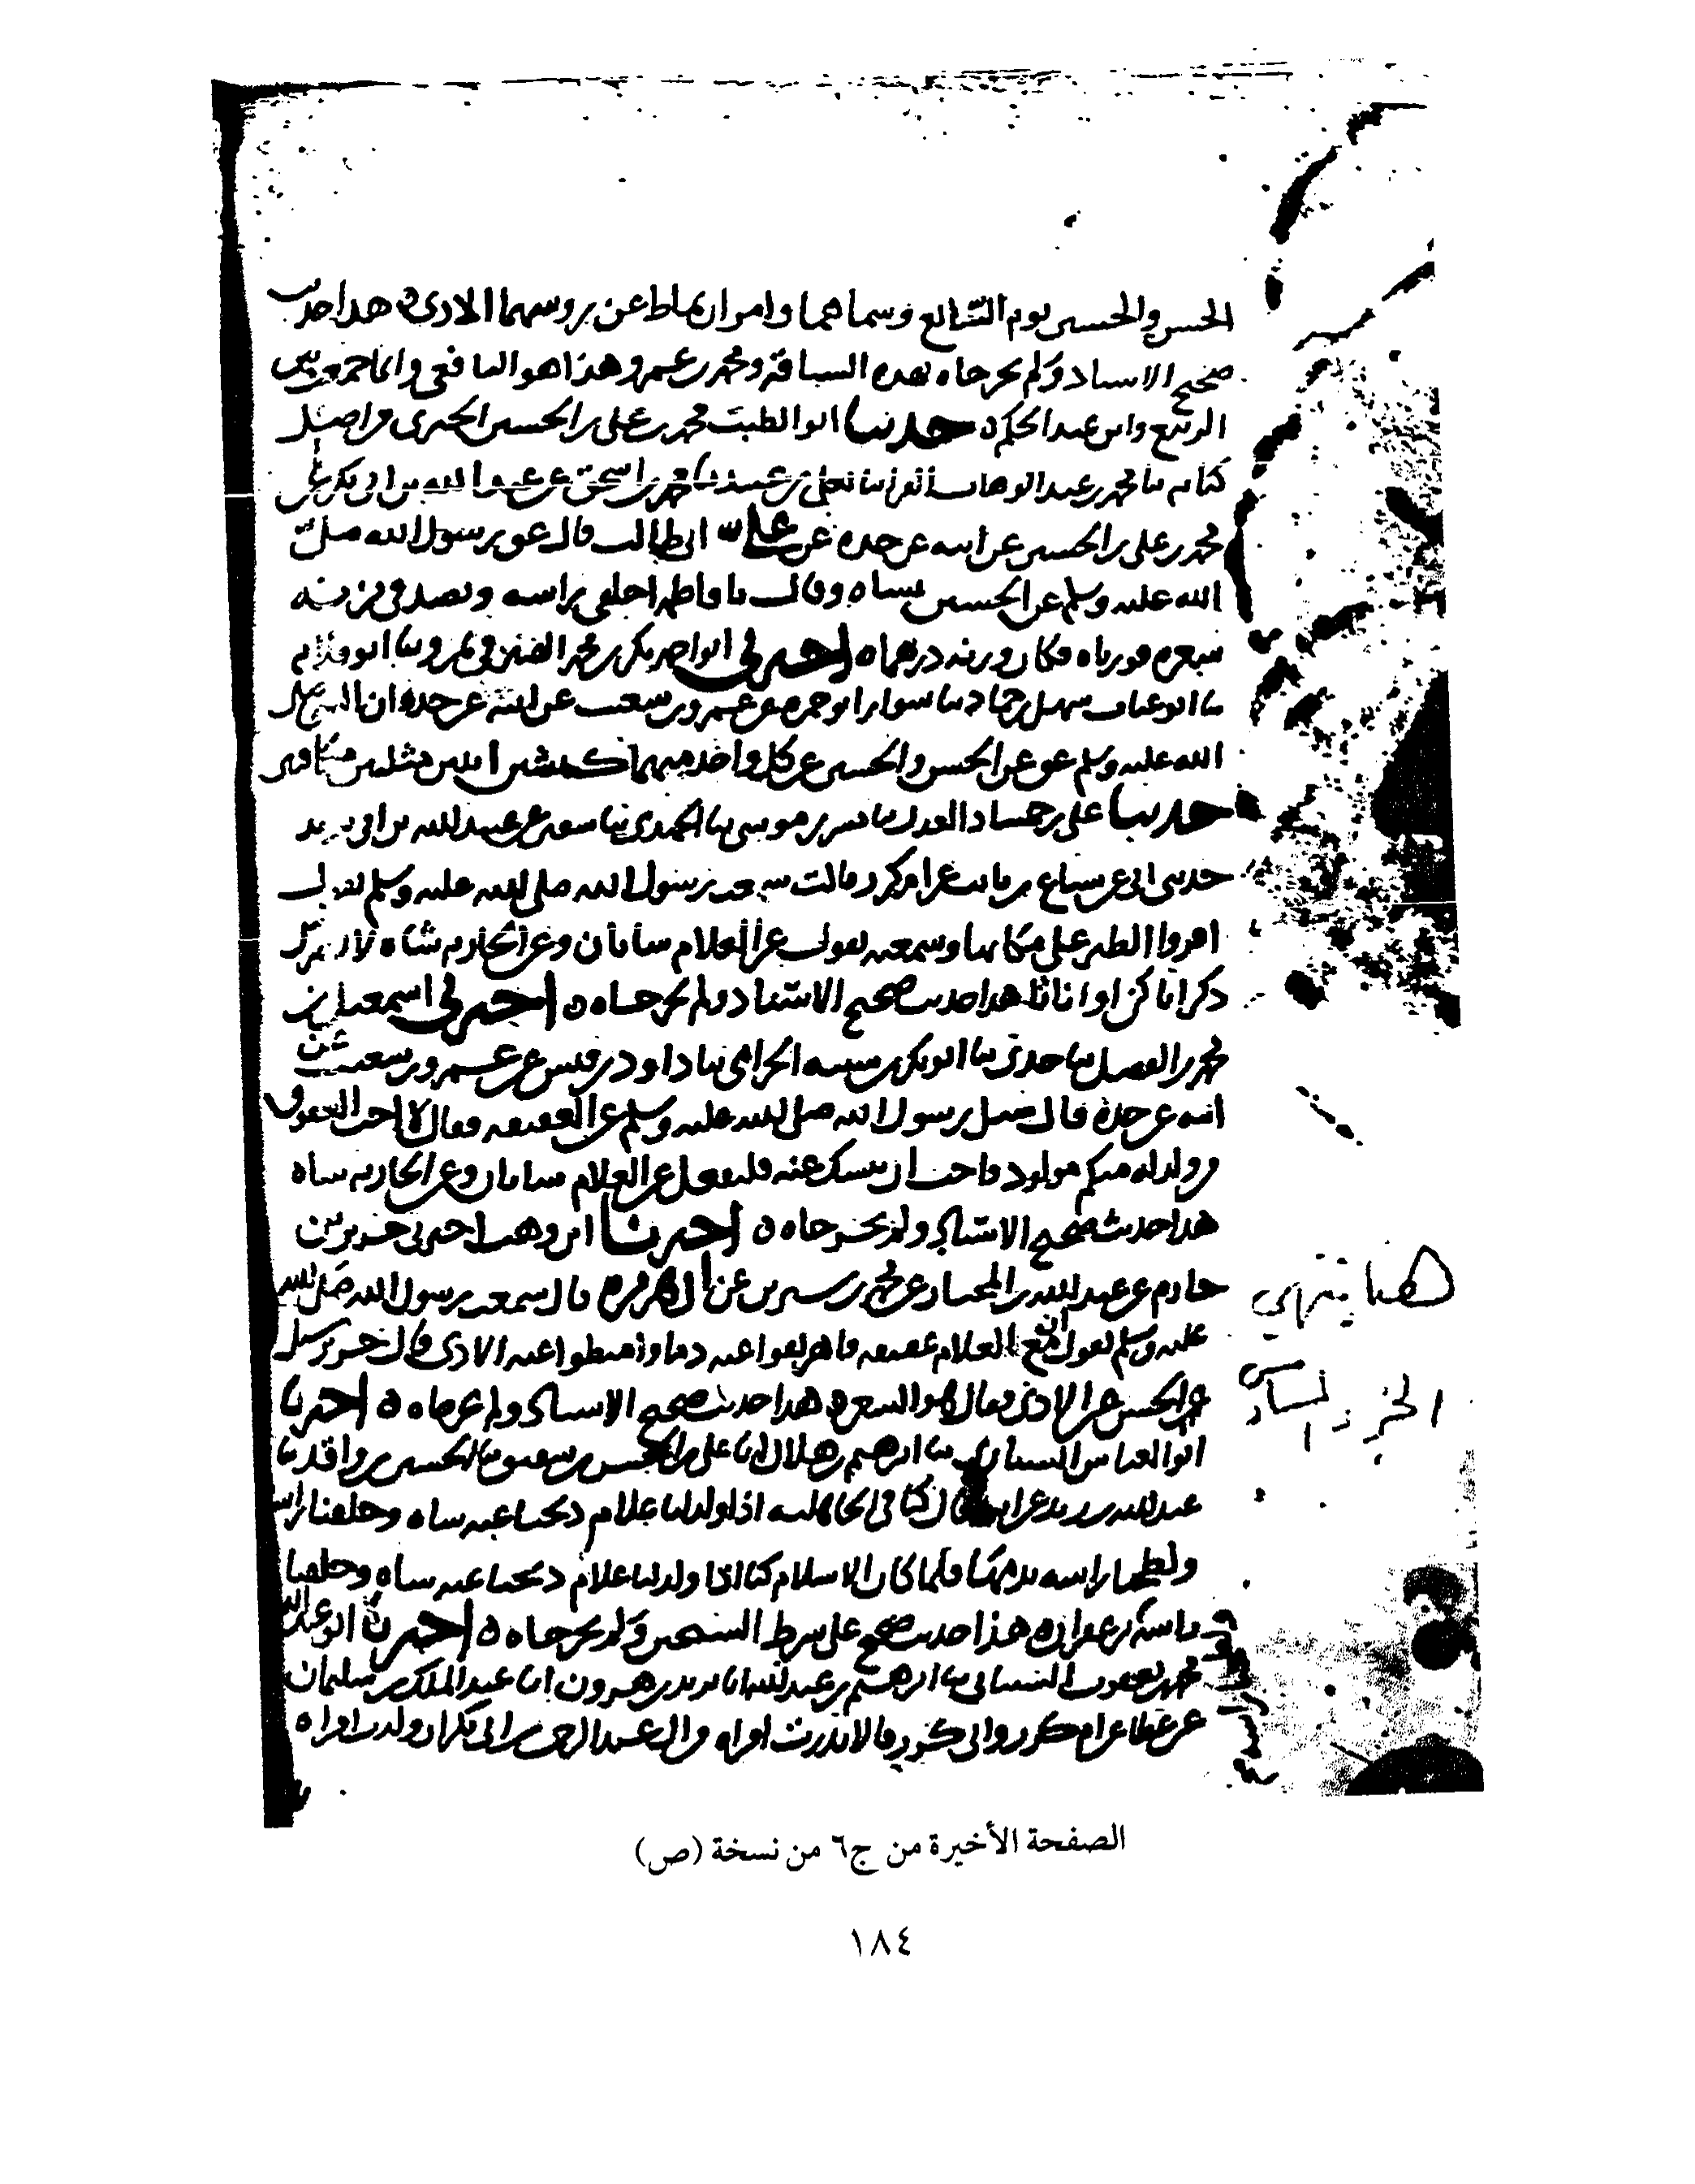 الحسن والحسين يوم السابع وسماهما وامر ان يماط عن روسهما الاذى هذا حديث
صحيح الاسناد ولم يخرجاه بهذه السياقة ومحمد بن عمرو هذا هو اليافعي وانما
الربيع وابن عبد الحكم حدثنا ابو الطيب محمد بن علي بن الحسن الحيري من اصل
كتابه ثنا محمد بن عبد الوهاب الفرا ثنا يعلى بن عبيد ثنا محمد بن اسحق عن عبد الله بن ابي بكر عن
محمد بن علي بن الحسين عن ابيه عن جده عن علي بن ابي طالب قال عق رسول الله صلى
الله عليه وسلم عن الحسين بشاه وقال يا فاطمه احلقي راسه وتصدقي بزنه
شعره فوزناه فكان وزنه درهما اخبرني ابو احمد بكر بن محمد الصيرفي بمرو ثنا ابو قلابه
ثنا ابو عتاب سهل بن حماد ثنا سوار ابو حمزه عن عمرو بن شعيب عن ابيه عن جده ان النبي صلى
الله عليه وسلم عق عن الحسن والحسين عن كل واحد منهما كبشين اثنين مثلين متكافيين
حدثنا علي بن حمشاد العدل ثنا بشر بن موسى ثنا الحميدي ثنا سفين عن عبيد الله بن ابي يزيد
حدثني ابي عن سباع بن ثابت عن ام كرز قالت سمعت رسول الله صلى الله عليه وسلم يقول
اقروا الطير على مكاناتها وسمعته يقول عن الغلام شاتان وعن الجاريه شاه لا يضركم
ذكرانا كن او اناثا هذا حديث صحيح الاسناد ولم يخرجاه اخبرني اسمعيل بن
محمد بن الفضل ثنا جدي ثنا ابو بكر بن شيبه الحزامي ثنا داود بن قيس عن عمرو بن شعيب عن
ابيه عن جده قال سئل رسول الله صلى الله عليه وسلم عن العقيقه فقال لا احب العقوق
من ولد له منكم مولود فاحب ان ينسك عنه فليفعل عن الغلام شاتان وعن الجاريه شاه
هذا حديث صحيح الاسناد ولم يخرجاه اخبرنا ابن وهب اخبرني جرير بن
حازم عن عبد الله بن المختار عن محمد بن سيرين عن ابي هريره قال سمعت رسول الله صلى الله
عليه وسلم يقول ان مع الغلام عقيقه فاهريقوا عنه دما واميطوا عنه الاذى قال جرير سئل
الحسن عن الاذى فقال هو الشعر هذا حديث صحيح الاسناد ولم يخرجاه اخبرنا
ابو العباس السياري ثنا ابرهيم بن هلال ثنا علي بن الحسن بن شقيق ثنا الحسين بن واقد ثنا
عبد الله بن بريده عن ابيه قال كنا في الجاهليه اذا ولد لنا غلام ذبحنا عنه شاه وحلقنا راسه
ولطخنا راسه بدمها فلما كان الاسلام كنا اذا ولد لنا غلام ذبحنا عنه شاه وحلقنا
راسه بزعفران هذا حديث صحيح على شرط الشيخين ولم يخرجاه اخبرنا ابو عبد الله
محمد بن يعقوب الشيباني ثنا ابرهيم بن عبد الله انا يزيد بن هرون انا عبد الملك بن سليمان
عن عطا عن ام كرز وابي كرز قالا نذرت امراه من ال عبد الرحمن بن ابي بكر ان ولدت امراه
هنا ينتهي
الجزء السادس
الصفحة الأخيرة من ج٦ من نسخة (ص)
١٨٤